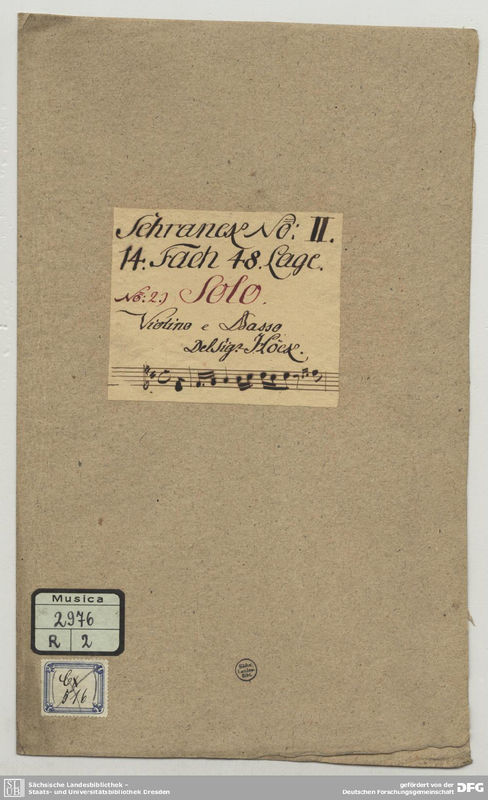 Schranck No: II.
14. Fach 48. Lage.
No: 2.) Solo.
Violino e Basso
Del Sigr. Höck.
Musica
2976
R 2
Cx
Sächs.
Landes-
Bibl.
Sächsische Landesbibliothek –
Staats- und Universitätsbibliothek Dresden
gefördert von der
Deutschen Forschungsgemeinschaft
DFG
SLUB